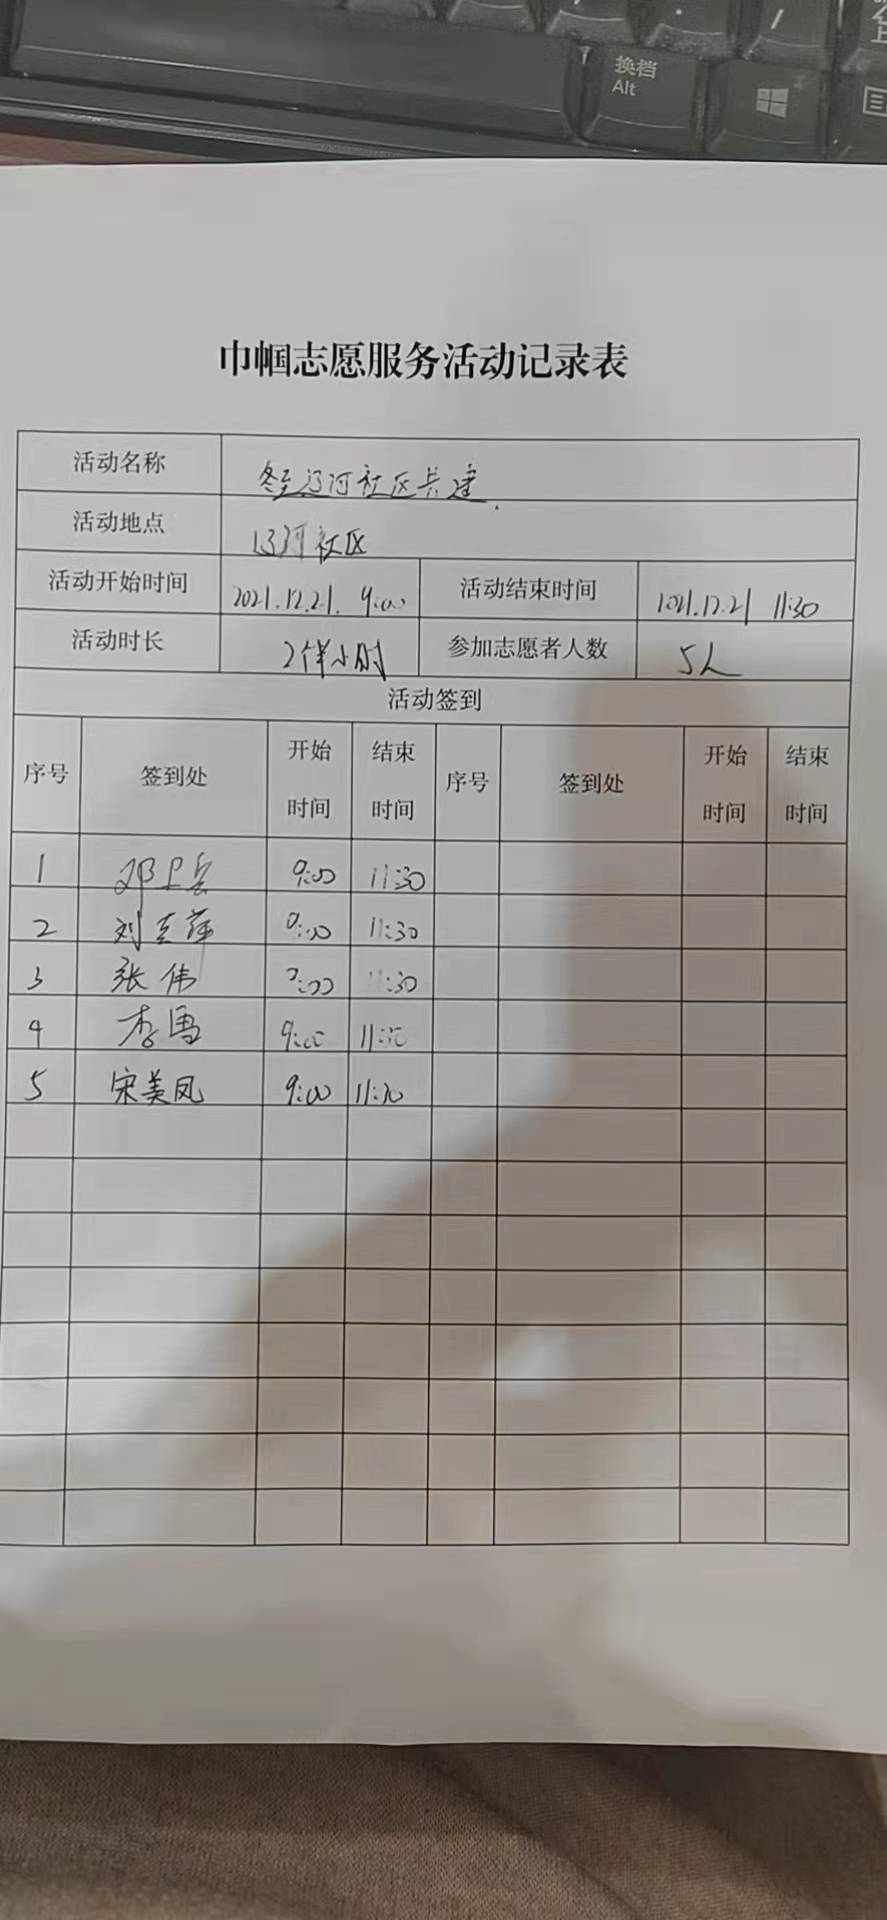 换档
Alt
巾帼志愿服务活动记录表
活动名称 冬至辽河社区共建
活动地点 辽河社区
活动开始时间 2021.12.21. 9:00 活动结束时间 2021.12.21 11:30
活动时长 2个半小时 参加志愿者人数 5人
活动签到
序号 签到处 开始时间 结束时间 序号 签到处 开始时间 结束时间
1 邓 9:00 11:30
2 刘 萍 9:00 11:30
3 张伟 9:00 11:30
4 李雪 9:00 11:30
5 宋美凤 9:00 11:30